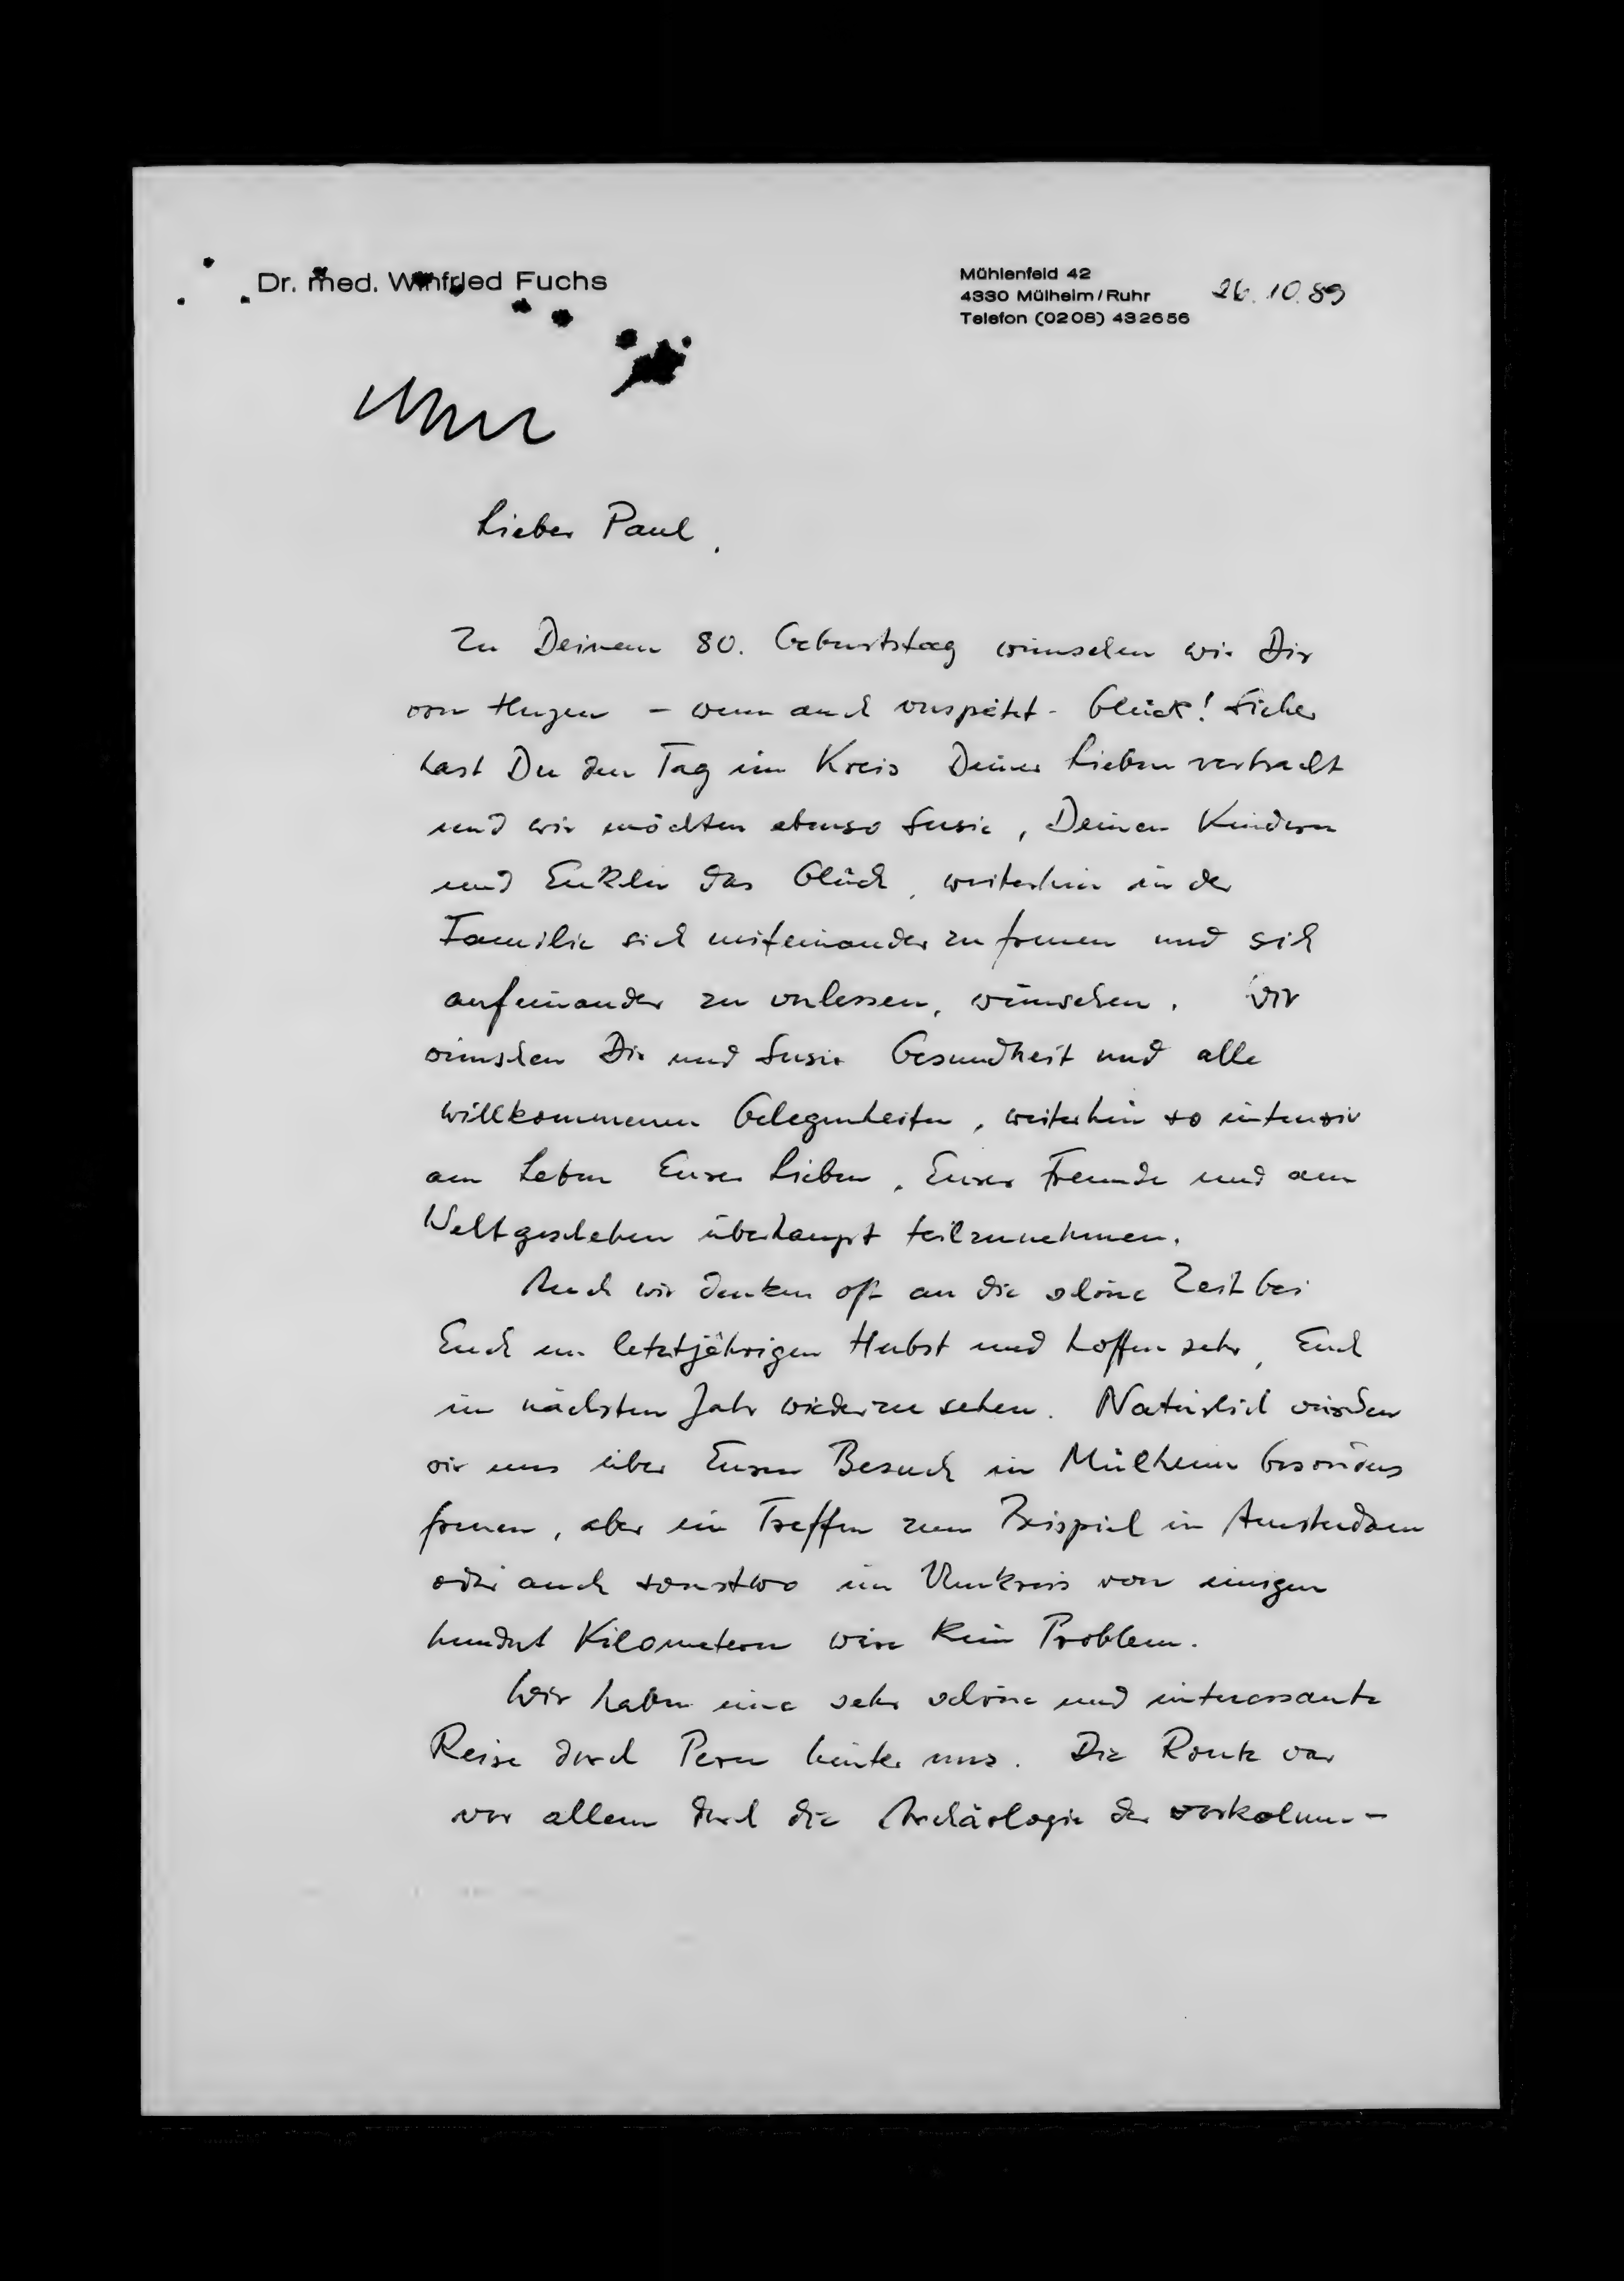 Dr. med. Winfried Fuchs
Mühlenfeld 42
4330 Mülheim/Ruhr
Telefon (0208) 432656
26.10.89
Lieber Paul,
Zu Deinem 80. Geburtstag wünschen wir Dir
von Herzen - wenn auch verspätet - Glück! Sicher
hast Du den Tag im Kreis Deiner Lieben verbracht
und wir möchten ebenso Susie, Deinen Kindern
und Enkeln das Glück, weiterhin in der
Familie sich miteinander zu freuen und sich
aufeinander zu verlassen, wünschen. Wir
wünschen Dir und Susie Gesundheit und alle
willkommenen Gelegenheiten, weiterhin so intensiv
am Leben Eurer Lieben, Eurer Freunde und am
Weltgeschehen überhaupt teilzunehmen.
Auch wir denken oft an die schöne Zeit bei
Euch im letztjährigen Herbst und hoffen sehr, Euch
im nächsten Jahr wiederzusehen. Natürlich würden
wir uns über Euren Besuch in Mülheim besonders
freuen, aber ein Treffen zum Beispiel in Amsterdam
oder auch sonstwo im Umkreis von einigen
hundert Kilometern wäre kein Problem.
Wir haben eine sehr schöne und interessante
Reise durch Peru hinter uns. Die Route war
vor allem durch die Archäologie der vorkolum-